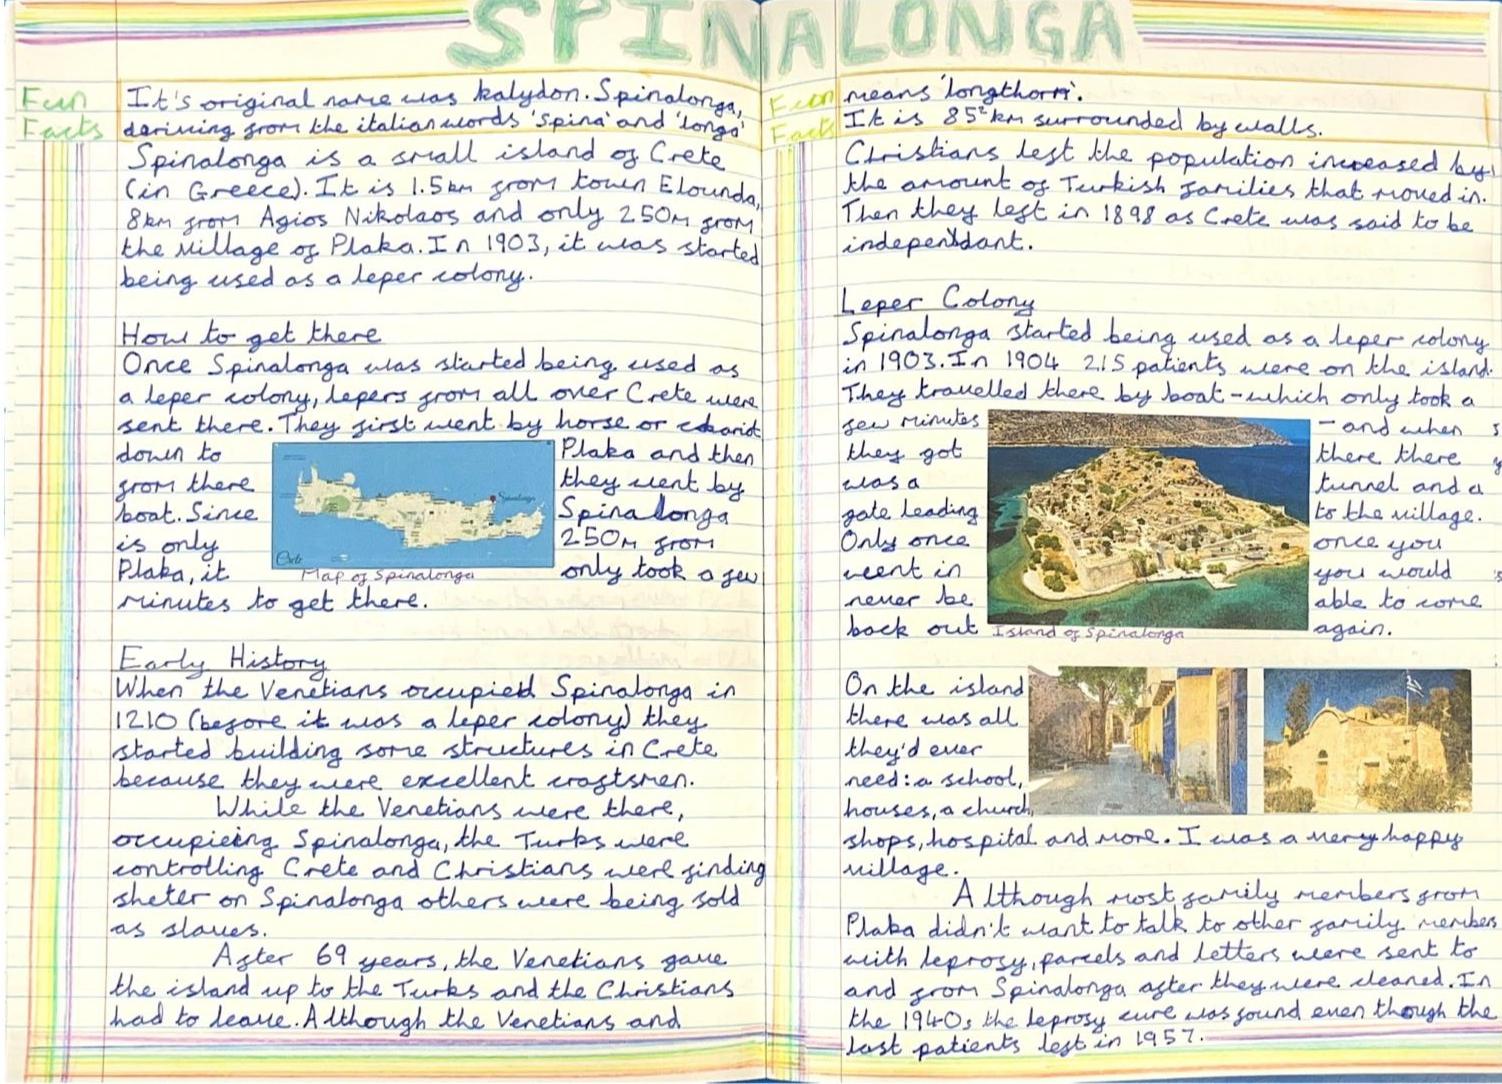 SPINALONGA
Fun
Facts
It's original name was kalydon. Spinalonga,
deriving from the italian words 'spina' and 'longa'
Spinalonga is a small island of Crete
(in Greece). It is 1.5km from town Elounda,
8km from Agios Nikolaos and only 250m from
the village of Plaka. In 1903, it was started
being used as a leper colony.
How to get there
Once Spinalonga was started being used as
a leper colony, lepers from all over Crete were
sent there. They first went by horse or chariot
down to Plaka and then
from there they went by
boat. Since Spinalonga
is only 250m from
Plaka, it only took a few
minutes to get there.
Spinalonga
Crete
Map of Spinalonga
Early History
When the Venetians occupied Spinalonga in
1210 (before it was a leper colony) they
started building some structures in Crete
because they were excellent craftsmen.
While the Venetians were there,
occupieing Spinalonga, the Turks were
controlling Crete and Christians were finding
sheter on Spinalonga others were being sold
as slaves.
After 69 years, the Venetians gave
the island up to the Turks and the Christians
had to leave. Although the Venetians and
Fun
Facts
means 'longthorn'.
It is 85²km surrounded by walls.
Christians left the population increased by
the amount of Turkish families that moved in.
Then they left in 1898 as Crete was said to be
independant.
Leper Colony
Spinalonga started being used as a leper colony
in 1903. In 1904 215 patients were on the island.
They travelled there by boat - which only took a
few minutes - and when
they got there there
was a tunnel and a
gate leading to the village.
Only once once you
went in you would
never be able to come
back out again.
Island of Spinalonga
On the island
there was all
they'd ever
need: a school,
houses, a church,
shops, hospital and more. I was a merry happy
village.
Although most family members from
Plaka didn't want to talk to other family members
with leprosy, parcels and letters were sent to
and from Spinalonga after they were cleaned. In
the 1940s the leprosy cure was found even though the
last patients left in 1957.